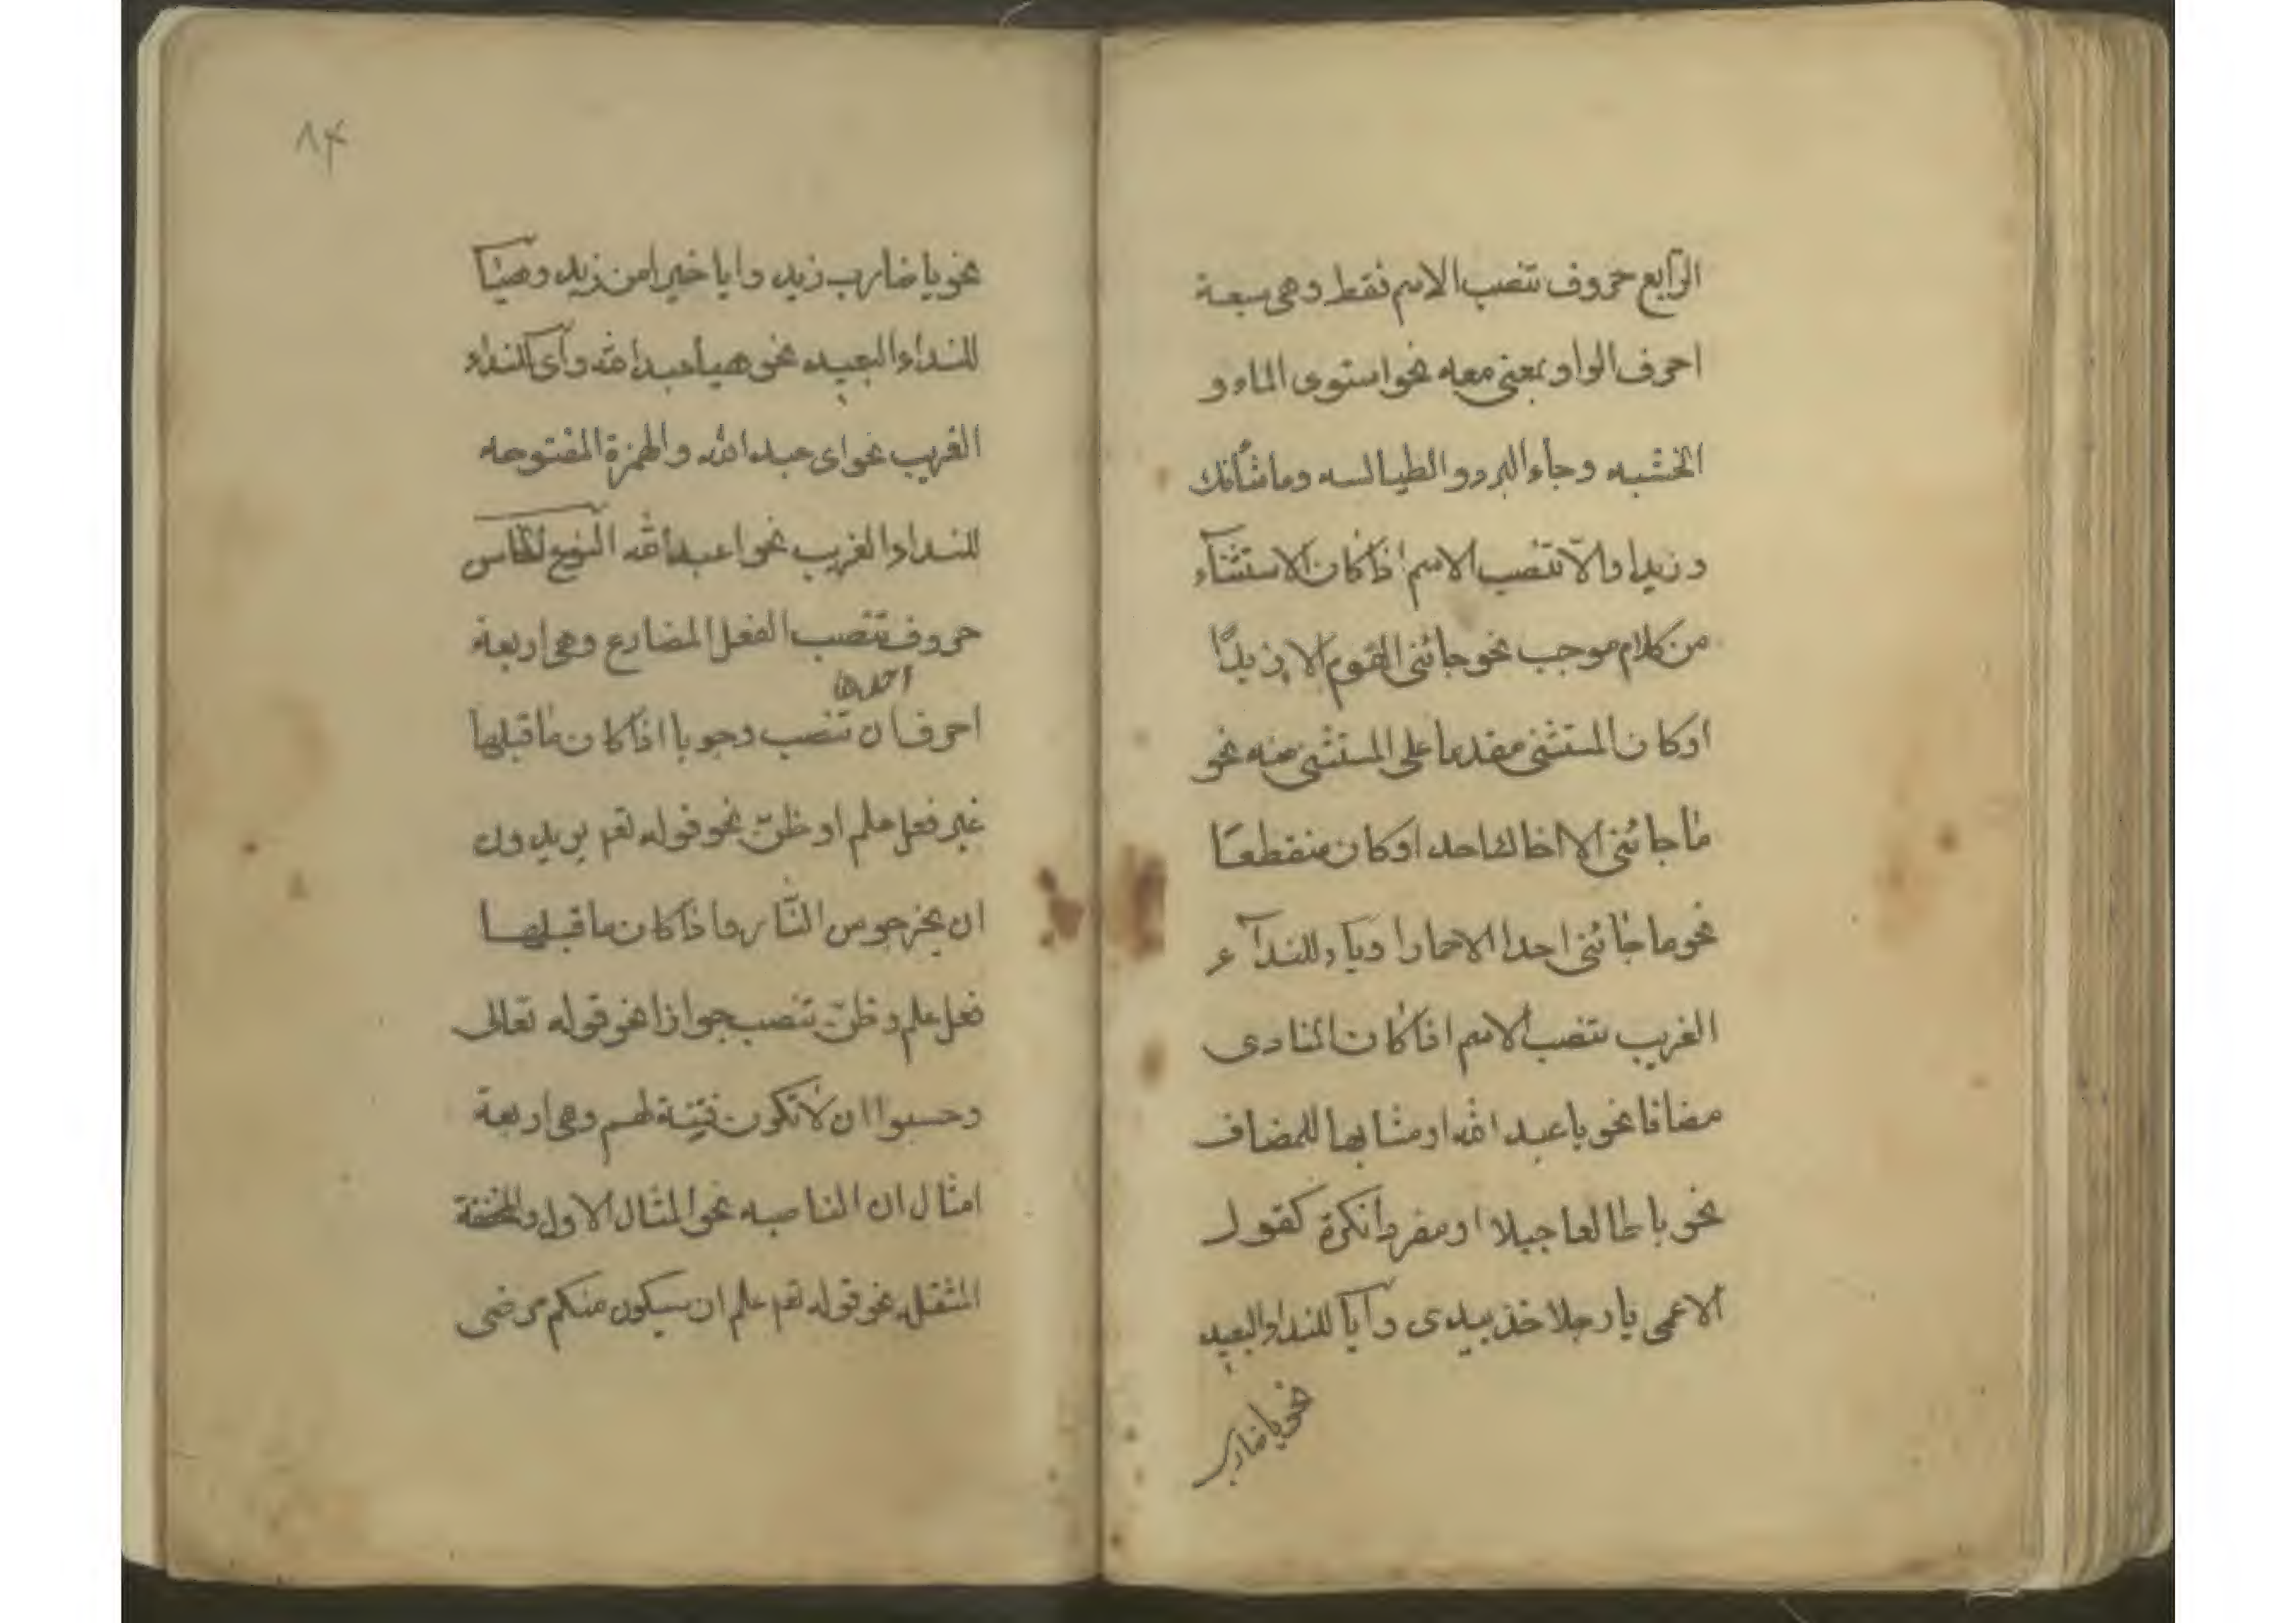 الرابع حروف تنصب الاسم فقط وهى سبعة
احرف الواو بمعنى معه نحو استوى الماء و
الخشبه وجاء البرد والطيالسه وما شأنك
وزيدا والّا تنصب الاسم اذا كان الاستثنآء
من كلام موجب نحو جائنى القوم الا زيدًا
اوكان المستثنى مقدما على المستثنى منه نحو
ما جائنى الا اخاك احد اوكان منقطعًا
نحو ما جائنى احدا الا حمارا وياء للندآء
القريب تنصب الاسم اذا كان المنادى
مضافا نحو يا عبد الله او مشابها للمضاف
نحو يا طالعا جبلا او مفردا نكرة كقول
الاعمى يا رجلا خذ بيدى وآيا للنداء البعيد
نحو يا ضارب
٨٤
نحو يا ضارب زيد وايا خيرا من زيد وهيئا
للنداء البعيد نحو هيا عبد الله وآى للنداء
القريب نحو اى عبد الله والهمزة المفتوحه
للنداء القريب نحو اعبد الله النوع الخامس
حروف تنصب الفعل المضارع وهى اربعة
احدها
احرف ان تنصب وجوبا اذا كان ما قبلها
غير فعل علم او ظنّ نحو قوله تعم يريدون
ان يخرجوس النّار واذا كان ما قبلها
فعل علم و ظنّ تنصب جوازا نحو قوله تعالى
وحسبوا ان لا تكون فتينة لهم وهى اربعة
امثال ان الناصبه نحو المثال الاول والمخففة
المثقله نحو قوله تعم علم ان سيكون منكم مرضى